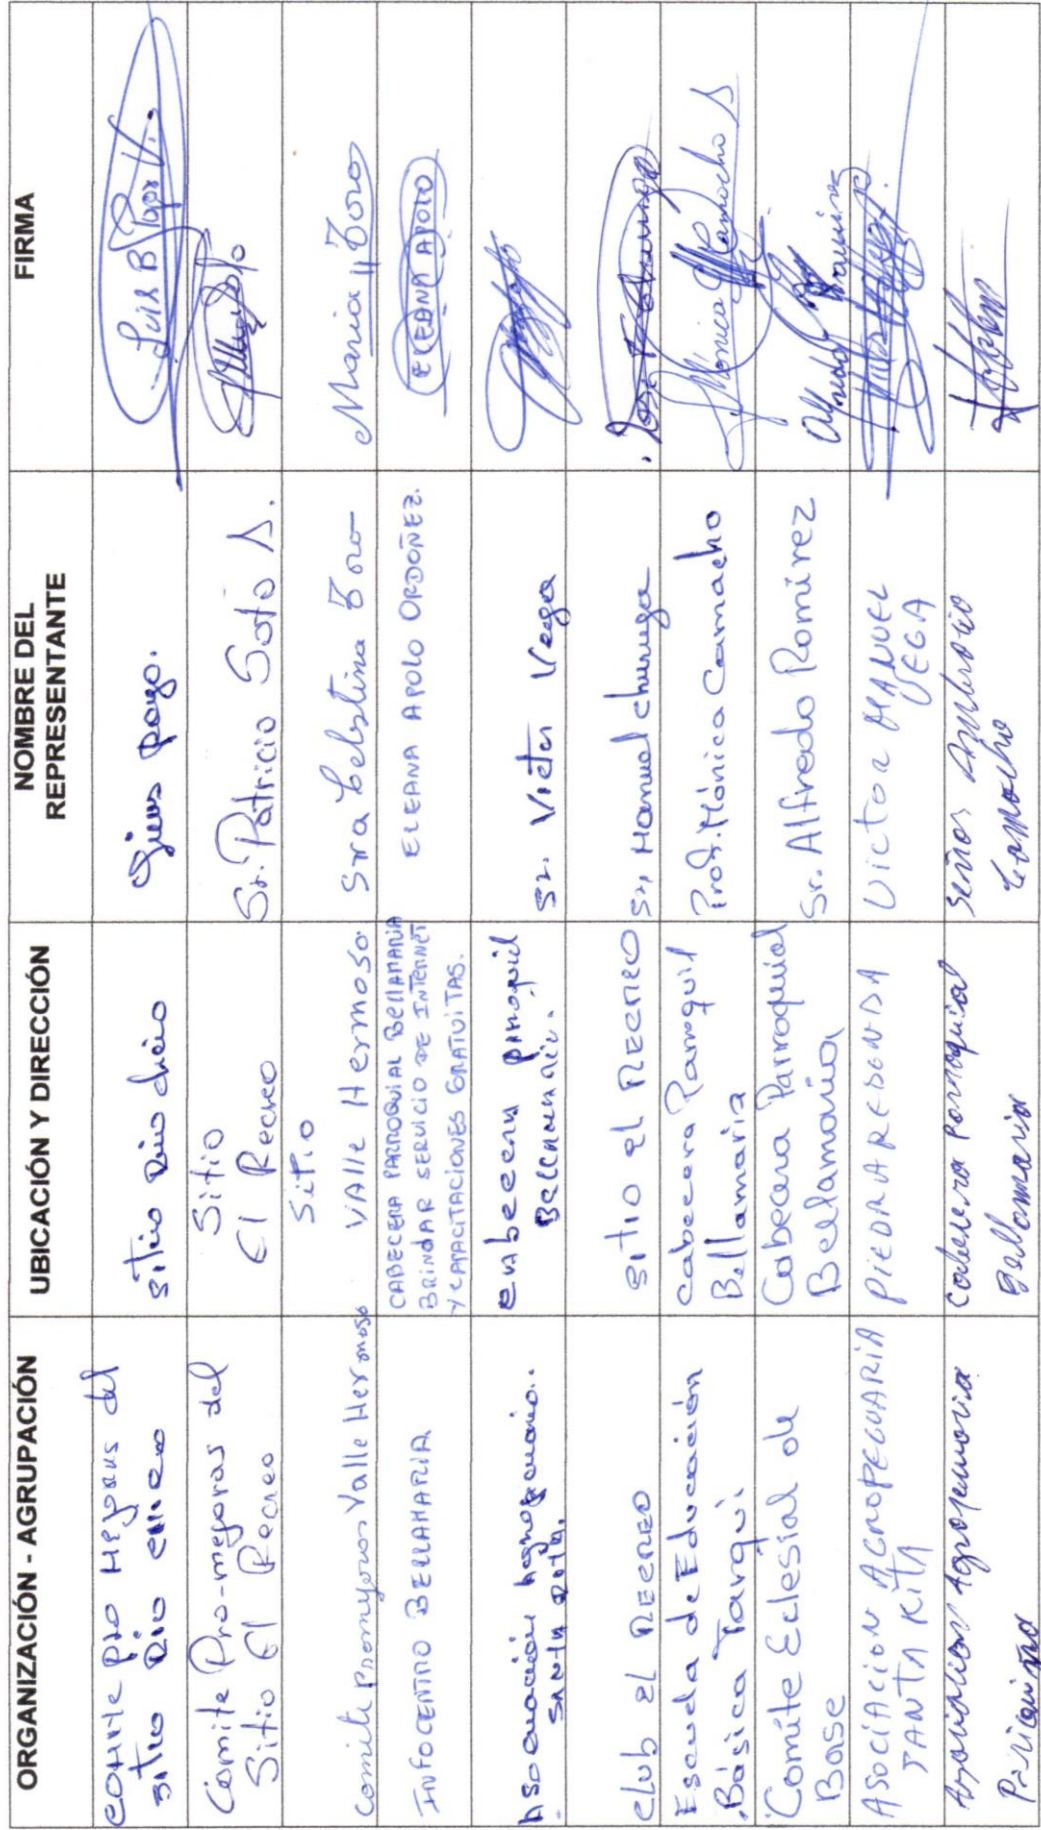 ORGANIZACIÓN - AGRUPACIÓN
UBICACIÓN Y DIRECCIÓN
NOMBRE DEL
REPRESENTANTE
FIRMA
sitio Rio
Luis B.
Comite Pro-mejoras del
Sitio El Recreo
Sitio
El Recreo
Sr. Patricio Soto S.
Valle Hermoso
Sitio
VAlle Hermoso
Sra Celestina Toro
Maria Toro
INFOCENTRO BELLAMARIA
CABECERA PARROQUIAL BELLAMARIA
BRINDAR SERVICIO DE INTERNET
Y CAPACITACIONES GRATUITAS.
ELEANA APOLO ORDOÑEZ.
ELEANA APOLO
SANTA Rita.
Sr. Victor Vega
club El RECREO
sitio el RECREO
Sr, Manuel chunga
Escuela de Educación
Básica Tarqui
Cabecera Parroquil
Bellamaria
Prof. Mónica Camacho
Mónica Camacho S
Comité Eclesial de
Base
Cabecera Parroquial
Bellamaria
Sr. Alfredo Ramirez
Alfredo Ramirez
ASOCIACION AGROPECUARIA
SANTA RITA
PIEDRA REDONDA
VICTOR MANUEL
VEGA
Agropecuaria
Cabecera Parroquial
Bellamaria
Señor Ambrosio
Camacho